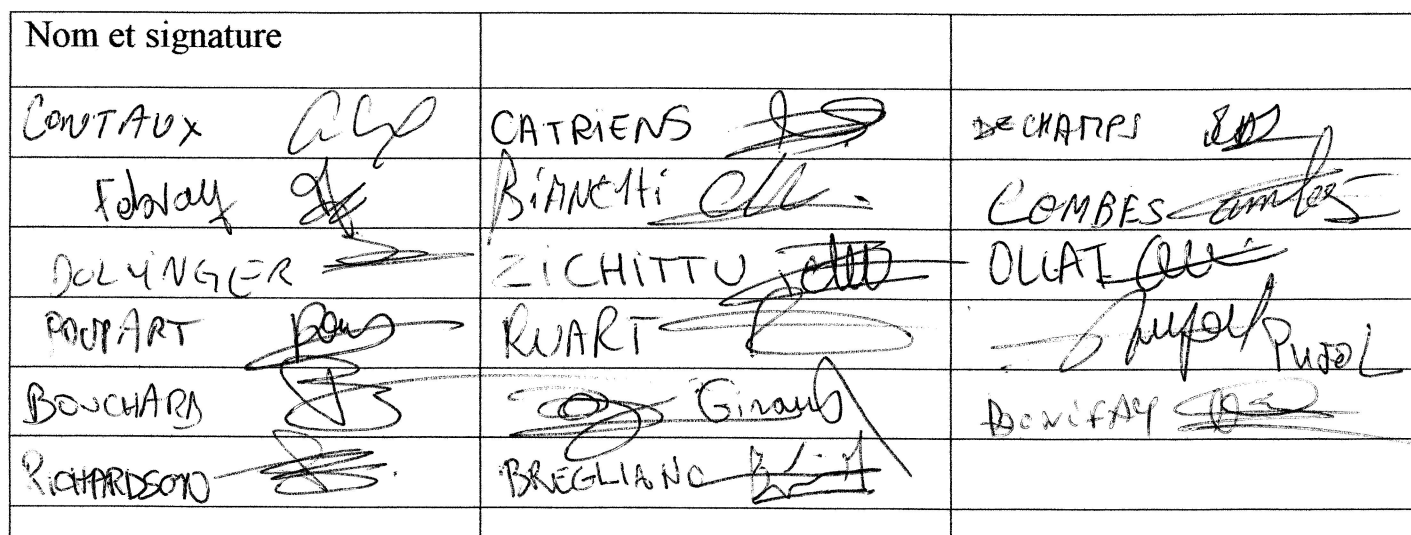 Nom et signature
CONTAUX CATRIENS DECHAMPS
Febvay BiANCHi COMBES
DOLYiNGER ZiCHiTTU OLLAI
POUPART RUART PUJOL
BOUCHARD Giraud BONiFAY
RiCHARDSON BREGLIANO